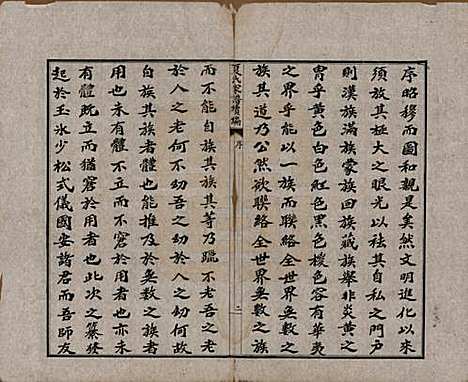 序昭穆而圖和親是矣然文明進化以來
須放其極大之眼光以祛其自私之門戶
則漢族滿族蒙族回族藏族舉非炎黃之
冑乎黃色白色紅色黑色椶色容有華夷
之界乎能以一族而聯絡全世界無數之
族其道乃公然欲聯絡全世界無數之族
夏氏家譜 序
而不能自族其族其等乃躐不老吾之老
於人之老何不幼吾之幼於人之幼何故
自族其族者體也能推及於無數之族者
用也未有體不立而不窘於用者也亦未
有體既立而猶窘於用者也此次之纂發
起於玉氷少松式儀國安諸君而吾師友